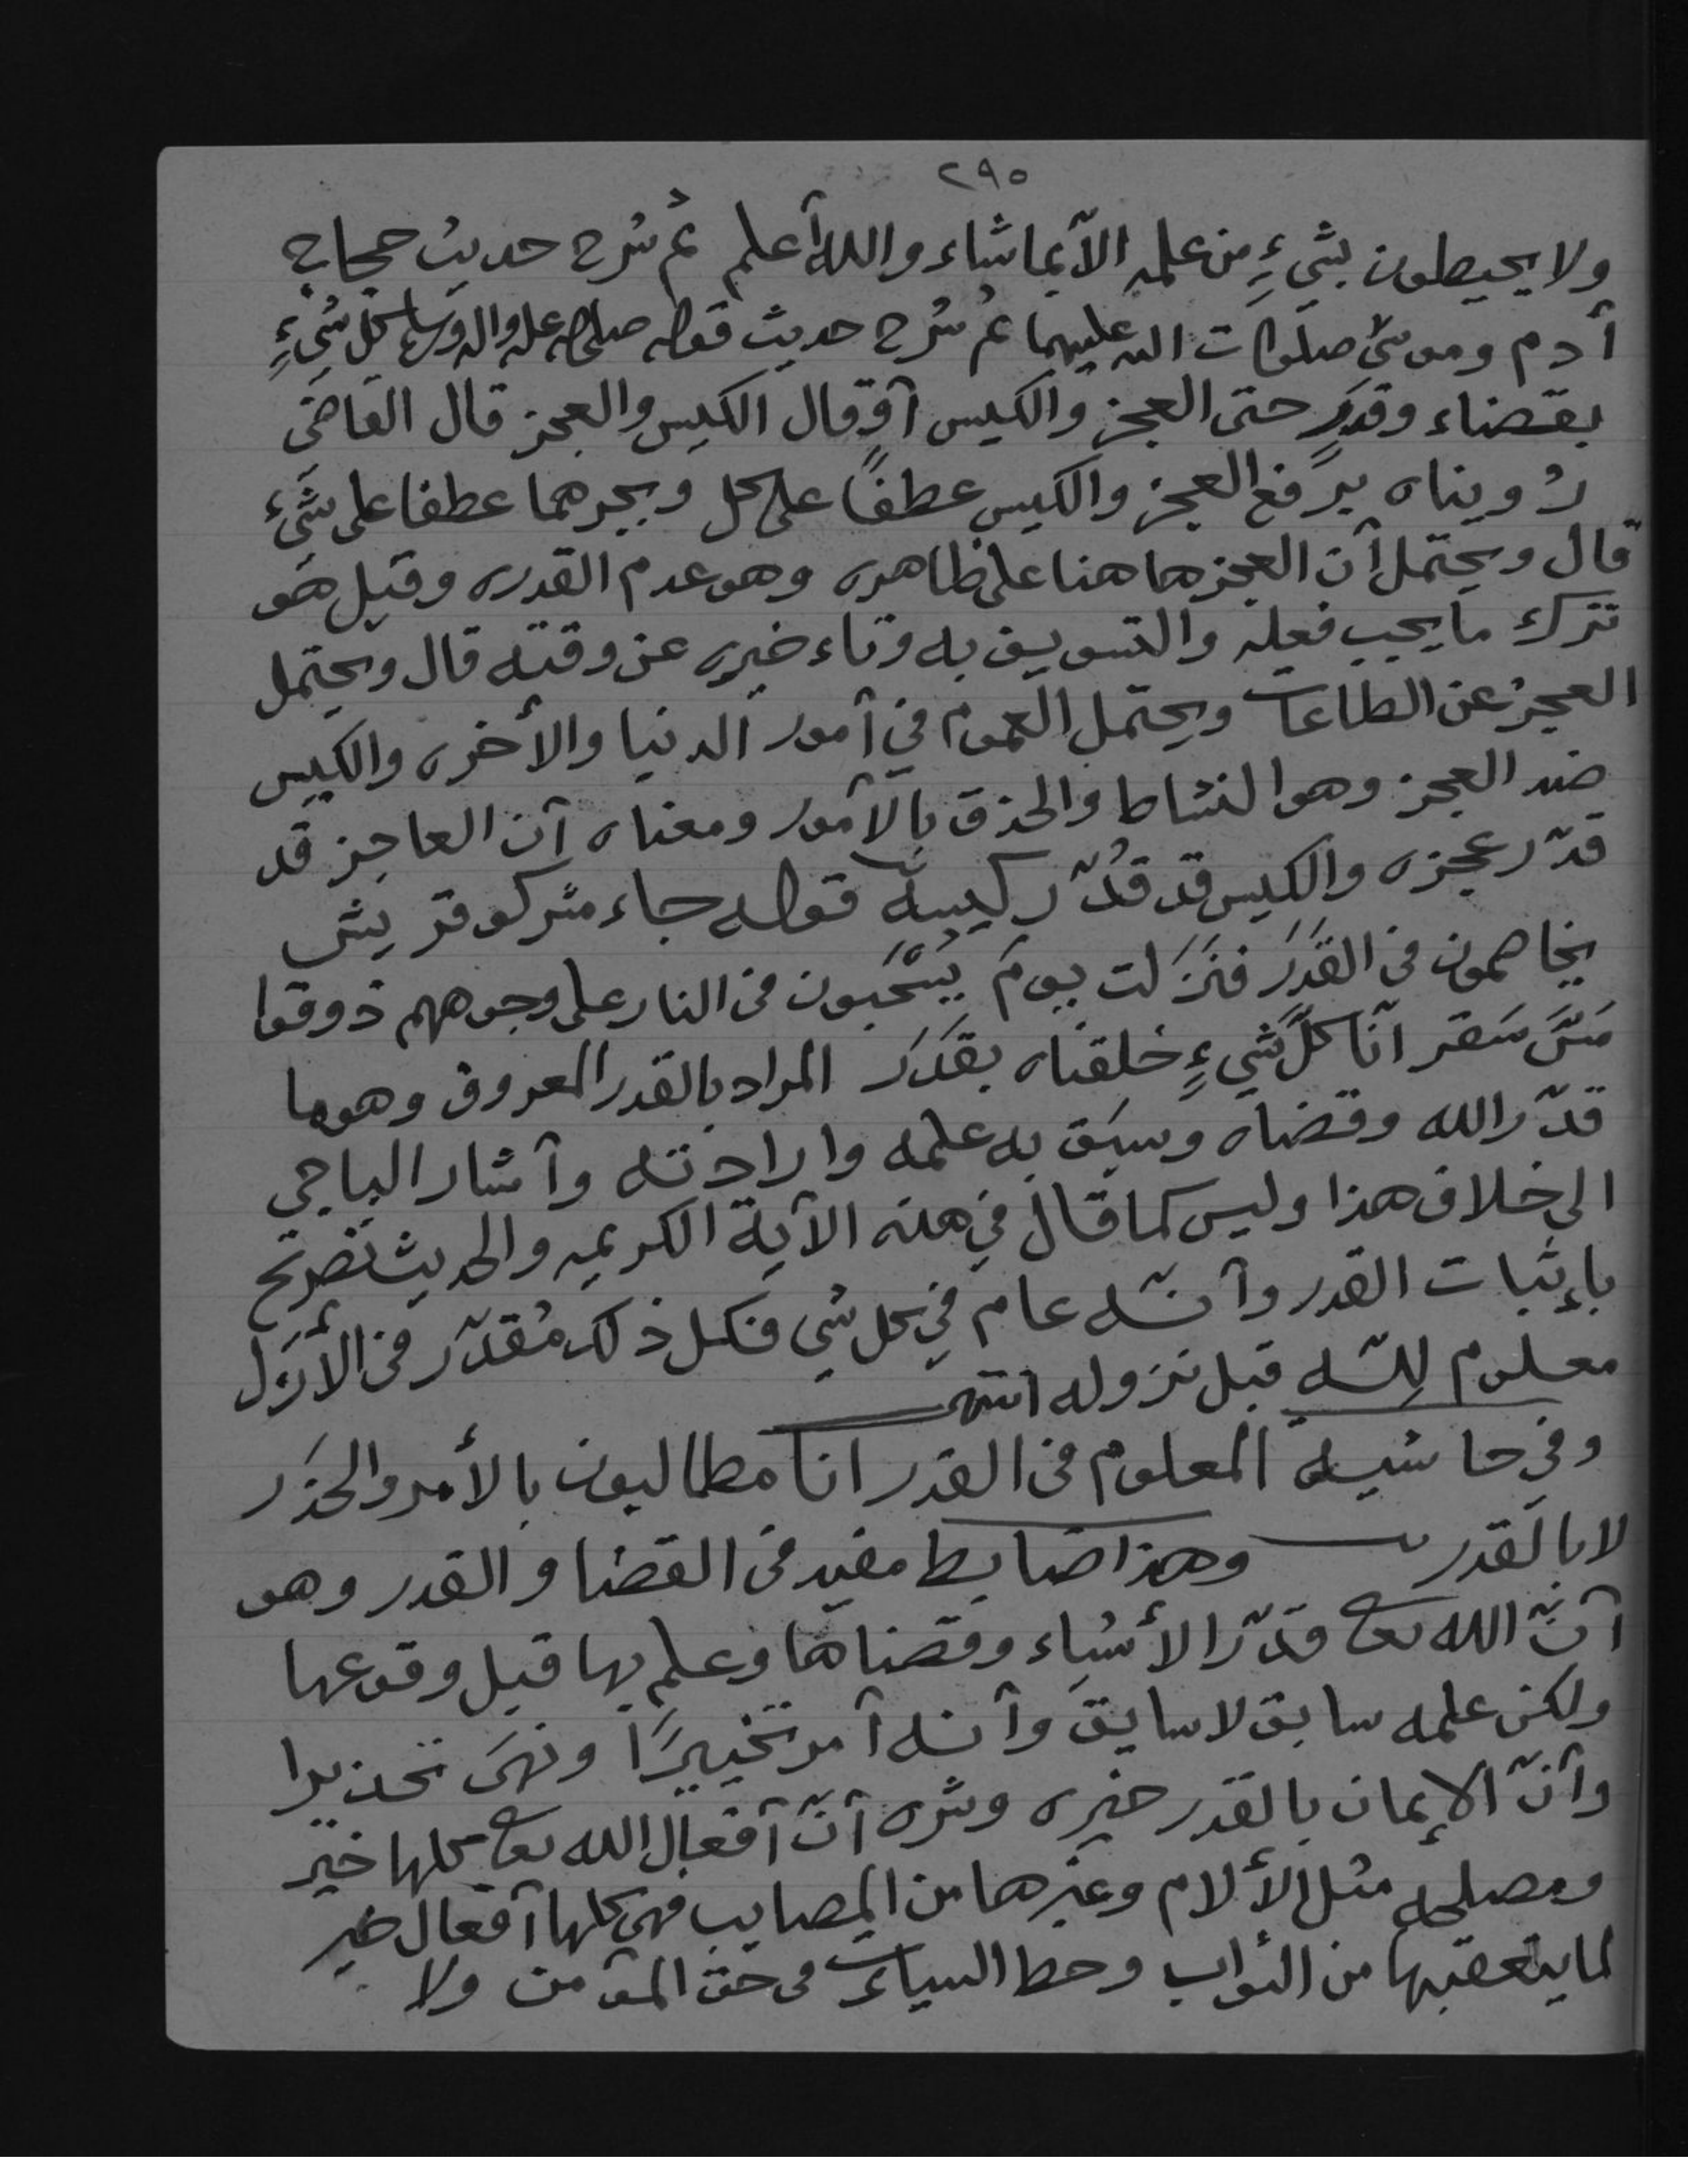 ٢٩٥
ولا يحيطون بشيءٍ من علمه الاّ بما شاء والله أعلم ثم شرح حديث حجاج
آدم وموسىٰ صلوات الله عليهما ثم شرح حديث قوله صلى الله عليه واله وسلم كل شيءٍ
بقضاء وقدرٍ حتى العجز والكيس أو قال الكيس والعجز قال القاضي
رُويناه برفع العجز والكيس عطفًا على كل وبجرهما عطفا على شيء
قال ويحتمل أن العجز هاهنا على ظاهره وهو عدم القدره وقيل هو
ترك ما يجب فعله والتسويف به وتاء خيره عن وقته قال ويحتمل
العجز عن الطاعات ويحتمل العموم في أمور الدنيا والأخره والكيس
ضد العجز وهو النشاط والحذق بالأمور ومعناه أن العاجز قد
قدّر عجزه والكيس قد قُدّر كيسه قوله جاء مشركو قريش
يخاصمون في القَدَر فنَزَلت يومَ يُسْحَبون في النار على وجوههم ذوقوا
مَسَّ سَقر انّا كلَّ شيءٍ خلقناه بقَدَر المراد بالقدر المعروف وهو ما
قدّر الله وقضاه وسبَق به علمه وارادته وأشار الباجي
الى خلاف هذا وليس كما قال في هذه الآية الكريمه والحديث تصريح
بإثبات القدر وأنّه عام في كل شي فكل ذلك مُقدّر في الأزل
معلوم لِلّه قبل نزوله انتهى
وفي حاشية المعلوم في القدر انا مطالبون بالأمر والحذر
لا بالقدر وهذا ضابط مفيد في القضا والقدر وهو
أنّ الله تعا قدّر الأشياء وقضاها وعلم بها قبل وقوعها
ولكن علمه سابق لا سايق وأنه أمر تخييرًا ونهى تحذيرا
وأنّ الإيمان بالقدر خيره وشره أنّ أفعال الله تعا كلها خير
ومصلحه مثل الألام وغيرها من المصايب فهي كلها أفعال خير
لما يتعقبها من الثواب وحط السيات في حق المؤمن ولا